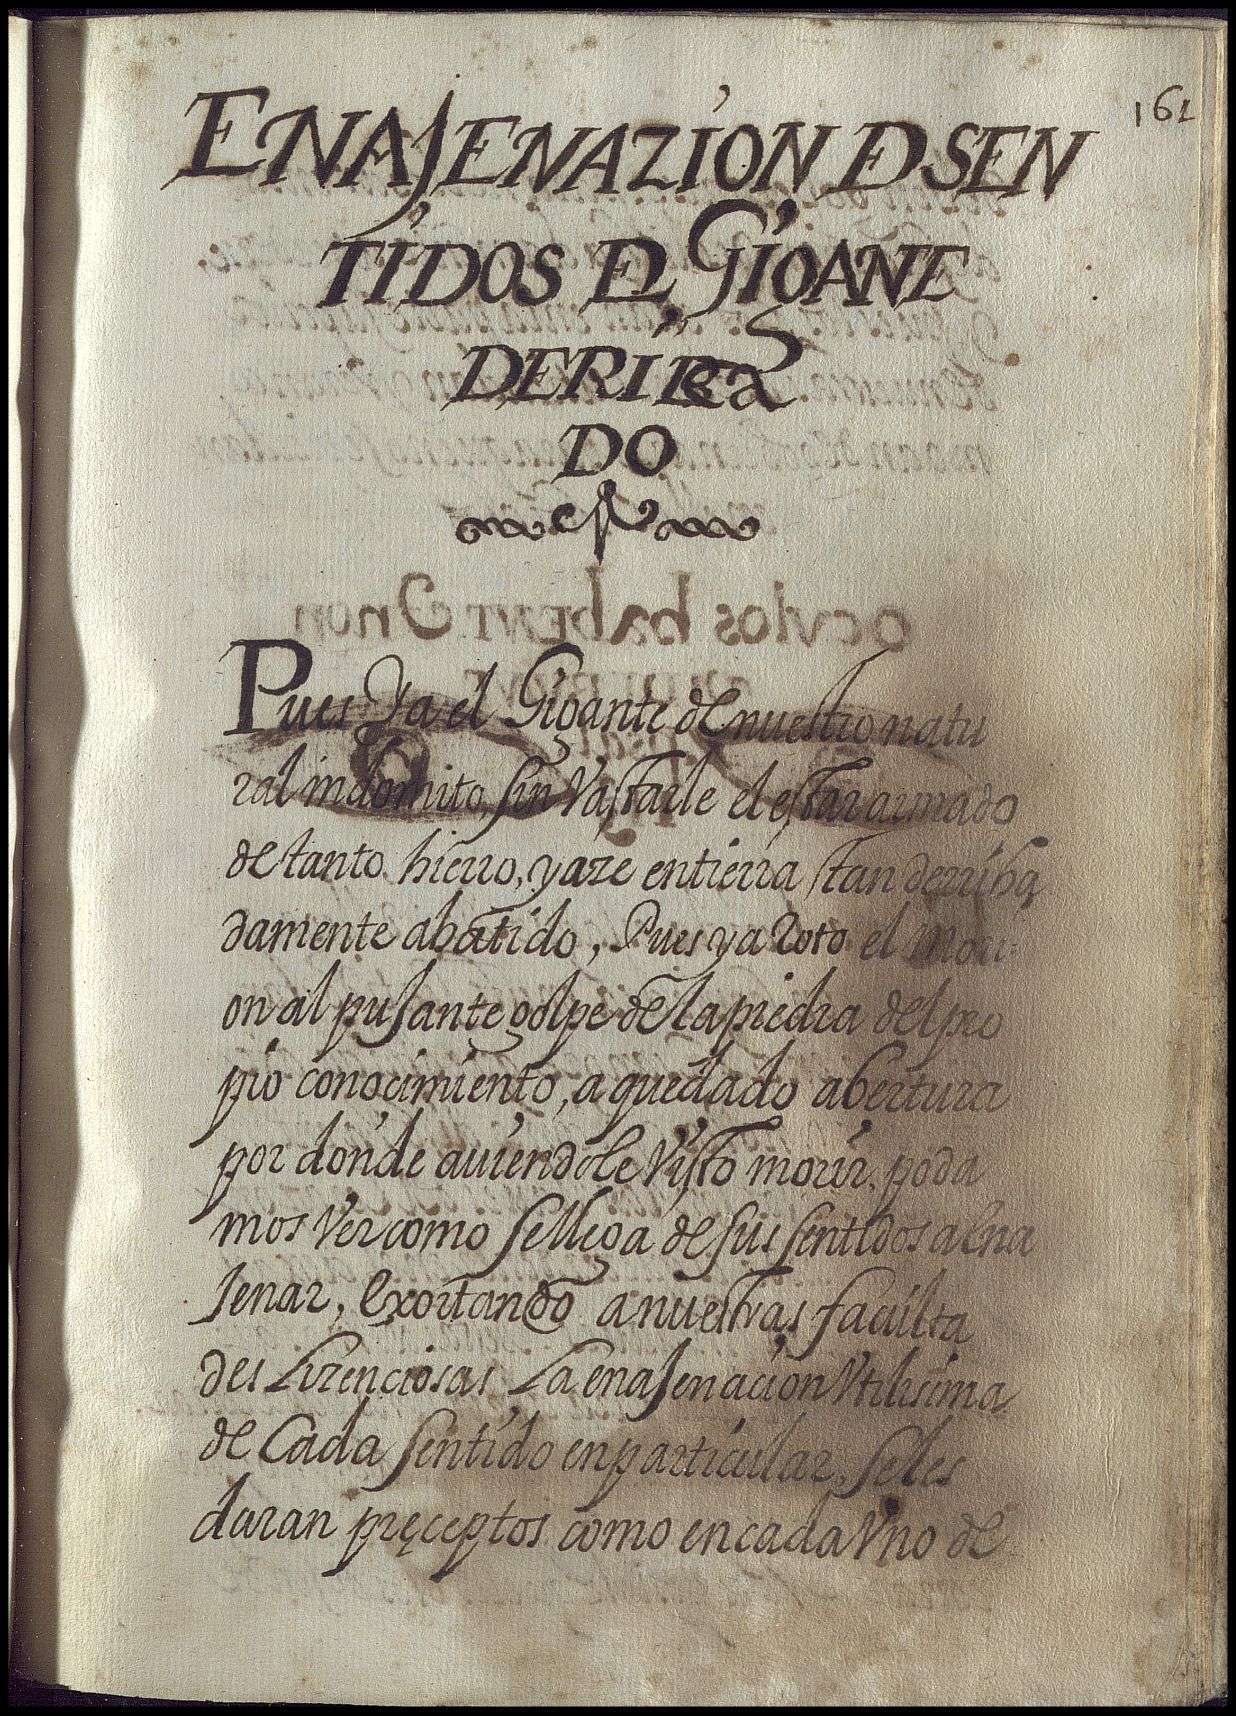 161
ENAJENAZION D SEN
TIDOS DEL GIGANTE
DERIBA
DO
Pues Ya el Gigante de nuestro natu
ral indomito, sin Vastarle el estar armado
de tanto hierro, yaze en tierra tan derriba
damente abatido, Pues ya Roto el morri
on al pujante golpe de la piedra del pro
pio conocimiento, a quedado abertura
por donde auiendole Visto morir, poda
mos Ver como se llega de sus sentidos a ena
jenar, exortando a nuestras faculta
des Lizenciosas La enajenacion Vtilisima
de Cada sentido en particular, se les
daran preceptos como en cada Vno de
oculos habent & non